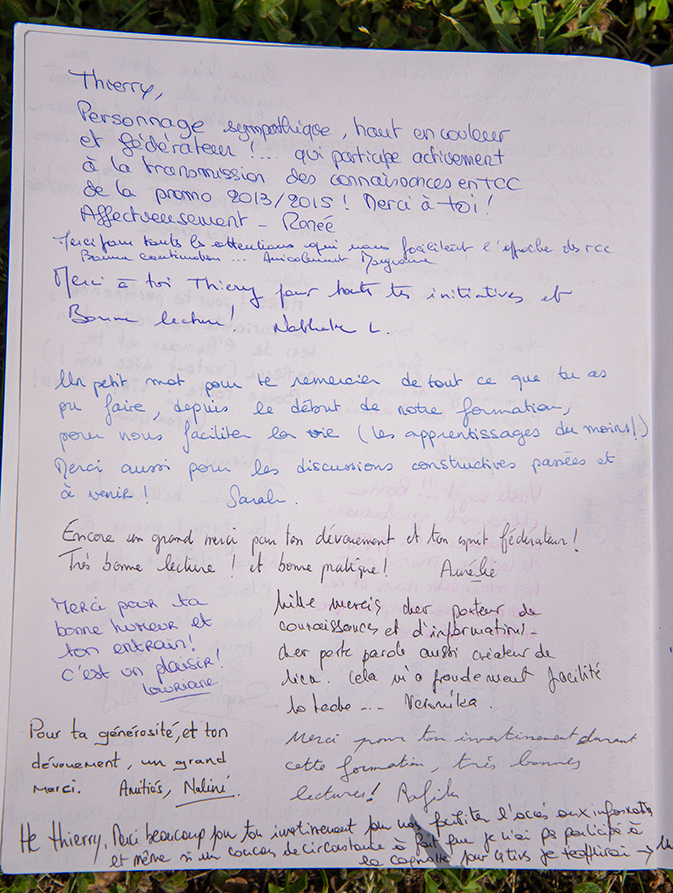 Thierry,
Personnage sympathique, haut en couleur
et fédérateur !... qui participe activement
à la transmission des connaissances en TCC
de la promo 2013/2015 ! Merci à toi !
Affectueusement - Renée
Merci pour toutes les attentions qui nous facilitent l'approche des TCC
Bonne continuation ... Amicalement
Merci à toi Thierry pour toutes tes initiatives et
Bonne lecture ! Nathalie L.
Un petit mot pour te remercier de tout ce que tu as
pu faire, depuis le début de notre formation,
pour nous faciliter la vie (les apprentissages du moins!)
Merci aussi pour les discussions constructives passées et
à venir ! Sarah.
Encore un grand merci pour ton dévouement et ton esprit fédérateur !
Très bonne lecture ! et bonne pratique ! Aurélie
Merci pour ta
bonne humeur et
ton entrain!
C'est un plaisir!
Lauriane
Mille mercis cher porteur de
connaissances et d'informations -
cher porte parole aussi créateur de
lien. Cela m'a grandement facilité
la tache --- Veronika.
Pour ta générosité, et ton
dévouement, un grand
merci. Amitiés,
Merci pour ton investissement durant
cette formation, très bonnes
lectures!
He Thierry, Merci beaucoup pour ton investissement pour nous faciliter l'accès aux informations
et même si un concours de circonstance a fait que je n'ai pas participé à
la cagnotte pour livres je →